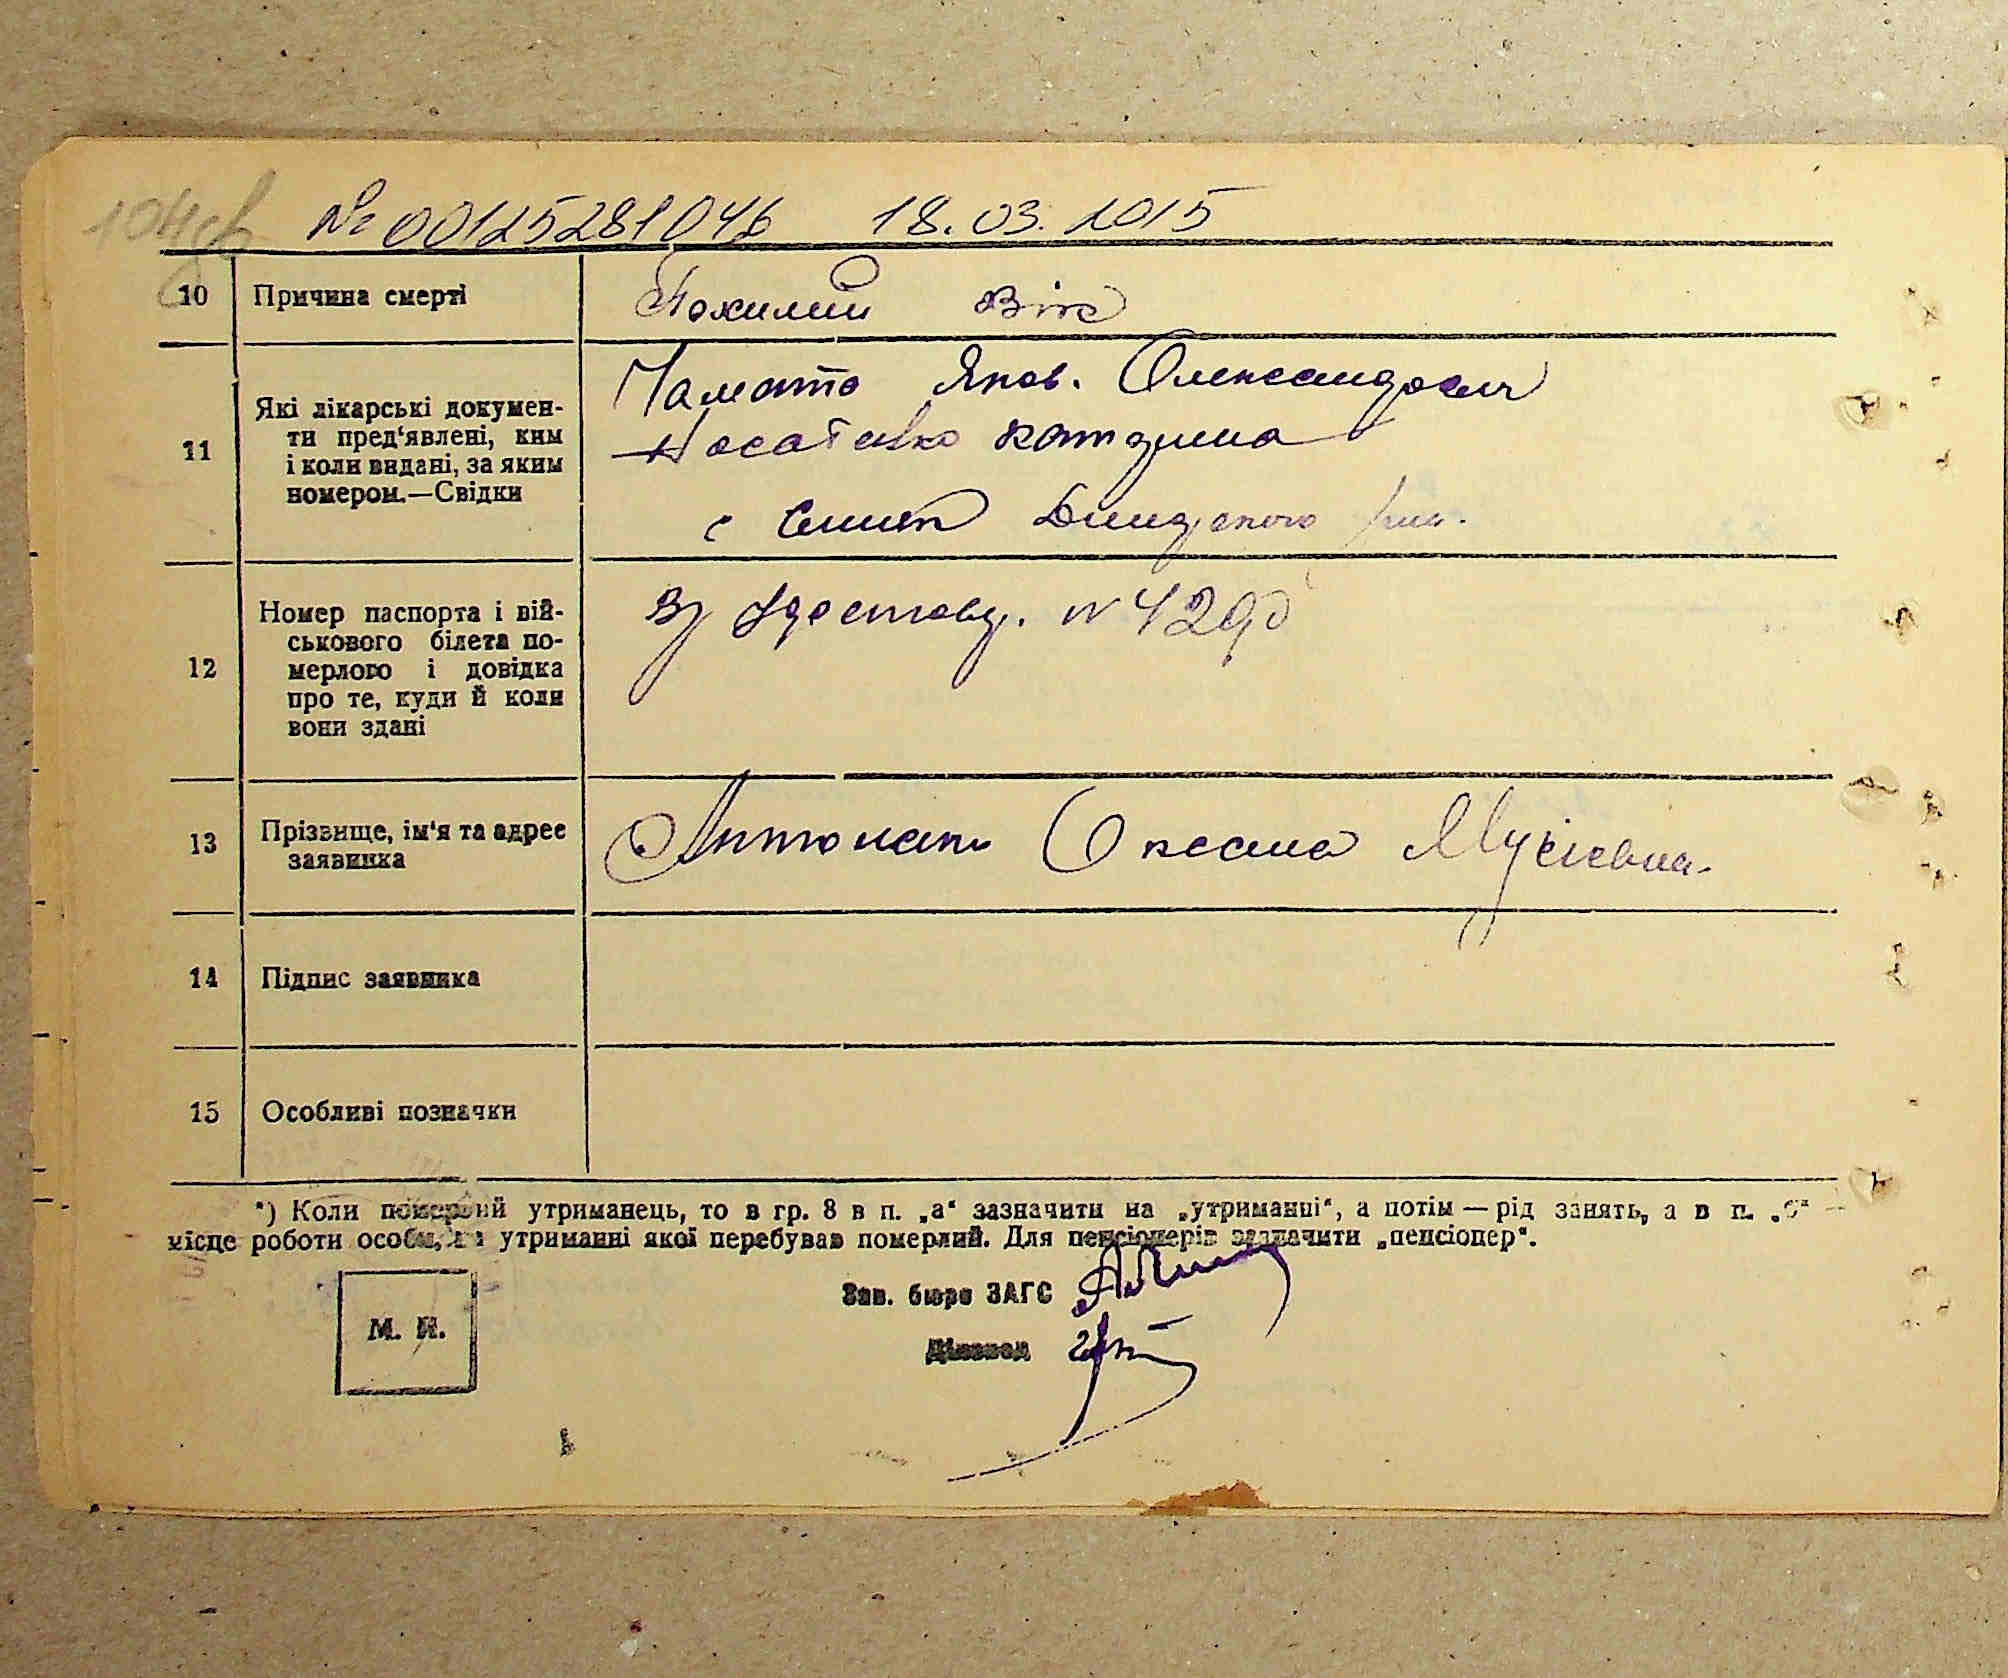 104зв № 00125281046 18.03.2015
10 Причина смерті Похилий Вік
11 Які лікарські докумен-
ти пред'явлені, ким
і коли видані, за яким
номером.—Свідки
Яков. Олександрович
Катерина
с
12 Номер паспорта і вій-
ськового білета по-
мерлого і довідка
про те, куди й коли
вони здані
№
13 Прізвище, ім'я та адрес
заявника
Антонюк Оксана Мусієвна.
14 Підпис заявника
15 Особливі позначки
*) Коли померлий утриманець, то в гр. 8 в п. „а“ зазначити на „утриманні“, а потім — рід занять, а в п. „б“ —
місце роботи особи, на утриманні якої перебував померлий. Для пенсіонерів зазначити „пенсіонер“.
Зав. бюро ЗАГС
М. П.
Діловод